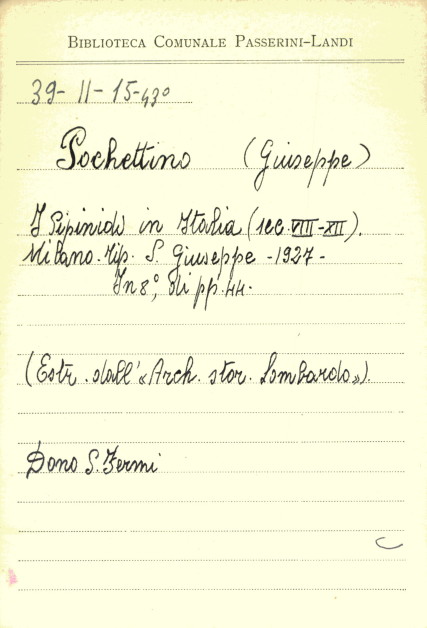 BIBLIOTECA COMUNALE PASSERINI-LANDI
39- II - 15-43°
Pochettino (Giuseppe)
I Pipinidi in Italia (sec. VIII-XII).
Milano. Tip. S. Giuseppe - 1927 -
In 8°, di pp. 44.
(Estr. dall'«Arch. stor. Lombardo»).
Dono S. Fermi